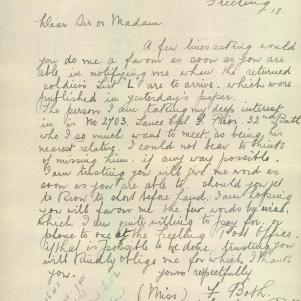 Freeling
18.
Dear Sir or Madam.
A few lines asking would
you do me a favour as soon as you are
able in notifying me when the returned
soldiers List "L" are to arrive. which were
published in yesterday's paper.
The person I am taking my deep interest
in is No 2703. Lance Cpl G. 32nd Batt
who I so much want to meet, as being his
nearest relating. I could not bear to think
of missing him. if any way possible.
I am trusting you will give me word as
soon as you are able to, should you get
to know to short before hand. I am hoping
you will favour me the few words by
which I am quite willing to pay for, or
phone to one of the Freeling Post Office.
if that is possible to be done. trusting you
will kindly oblige me for which I thank
you. yours respectfully
(Miss) L. Both.